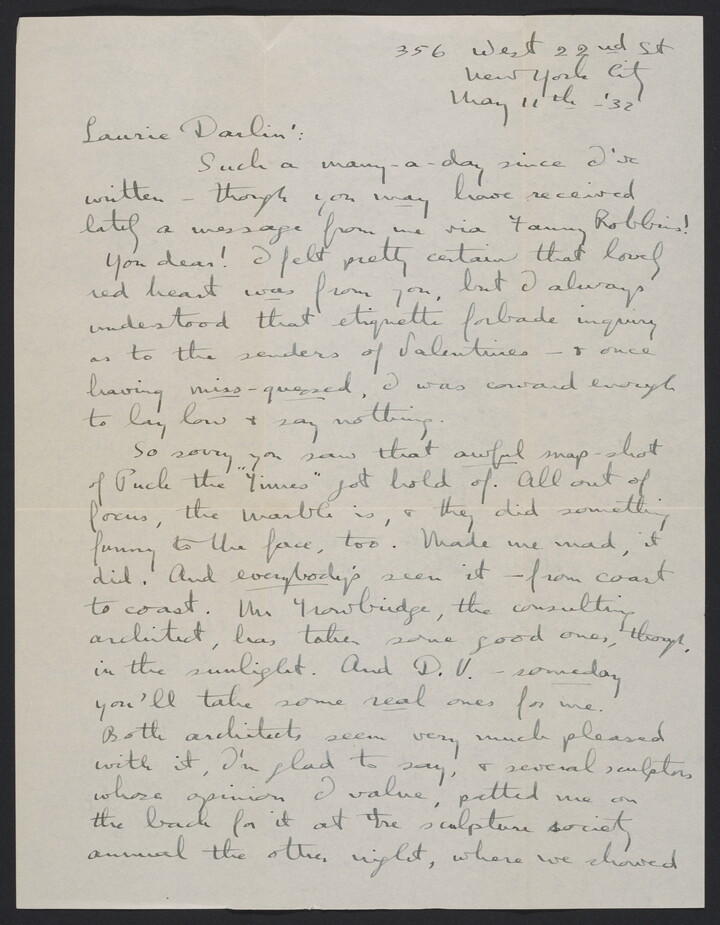 356 West 22nd St
New York City
May 11th - '32
Laurie Darlin':
Such a many-a-day since I've
written - though you may have received
lately a message from me via Fanny Robbins!
You dear! I felt pretty certain that lovely
red heart was from you, but I always
understood that etiquette forbade inquiry
as to the senders of Valentines - & once
having miss-guessed, I was coward enough
to lay low & say nothing.
So sorry you saw that awful snap-shot
of Puck the "Times" got hold of. All out of
focus, the marble is, & they did something
funny to the face, too. Made me mad, it
did. And everybody's seen it - from coast
to coast. Mr Trowbridge, the consulting
architect, has taken some good ones, though,
in the sunlight. And D.V. - someday
you'll take some real ones for me.
Both architects seem very much pleased
with it, I'm glad to say, & several sculptors
whose opinion I value, patted me on
the back for it at the sculpture society
annual the other night, where we showed